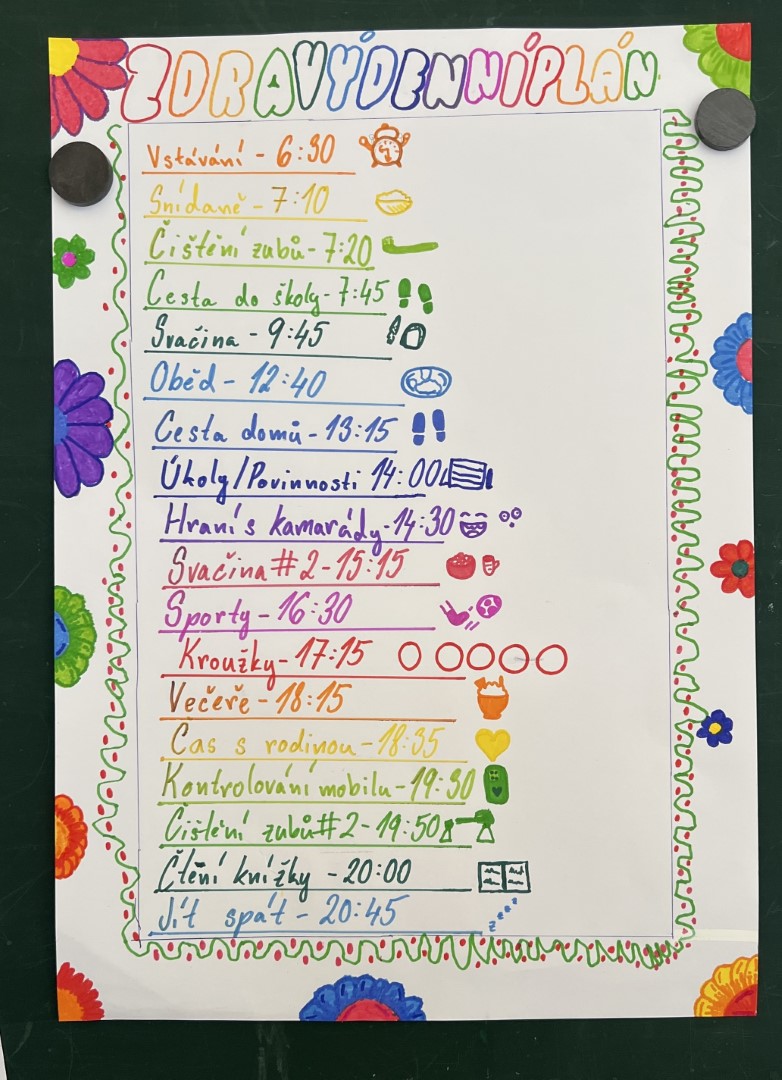 ZDRAVÝ DENNÍ PLÁN
Vstávání - 6:30
Snídaně - 7:10
Čištění zubů - 7:20
Cesta do školy - 7:45
Svačina - 9:45
Oběd - 12:40
Cesta domů - 13:15
Úkoly/Povinnosti 14:00
Hraní s kamarády - 14:30
Svačina #2 - 15:15
Sporty - 16:30
Kroužky - 17:15
Večeře - 18:15
Čas s rodinou - 18:35
Kontrolování mobilu - 19:30
Čištění zubů #2 - 19:50
Čtení knížky - 20:00
Jít spát - 20:45
zzzz